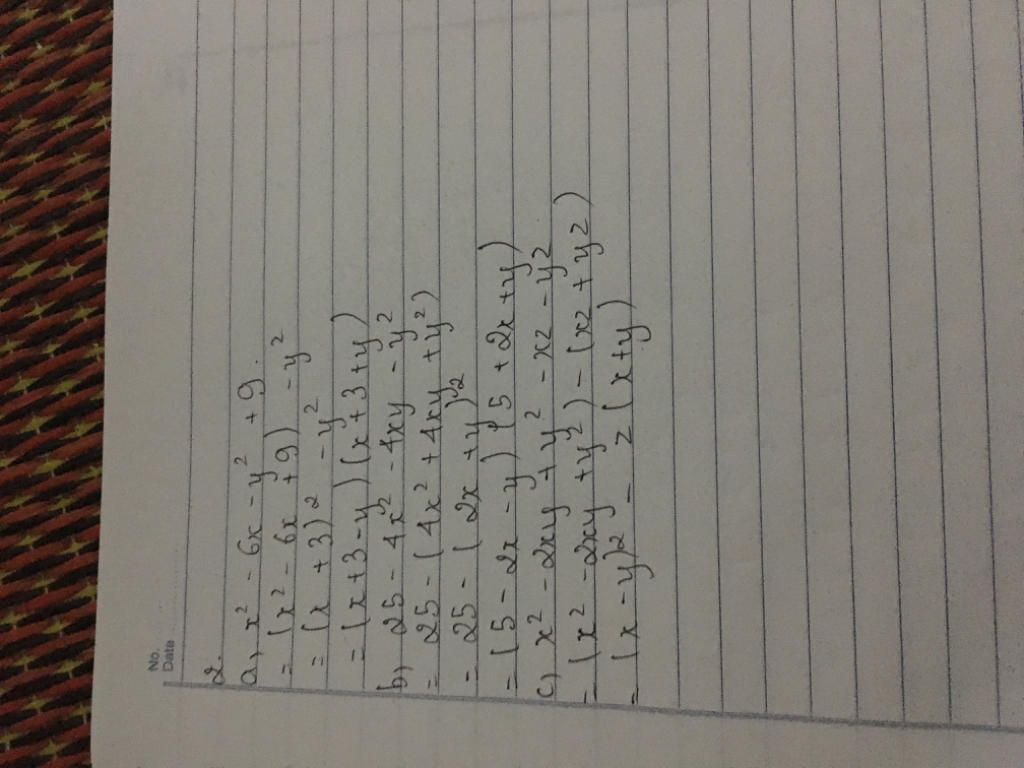 No.
Date
2.
a, x² - 6x - y² + 9.
= (x² - 6x + 9) - y²
= (x + 3)² - y²
= (x + 3 - y) (x + 3 + y)
b) 25 - 4x² - 4xy - y²
= 25 - (4x² + 4xy + y²)
= 25 - (2x + y)²
= (5 - 2x - y) (5 + 2x + y)
c) x² - 2xy + y² - xz - yz
= (x² - 2xy + y²) - (xz + yz)
= (x - y)² - z (x + y)